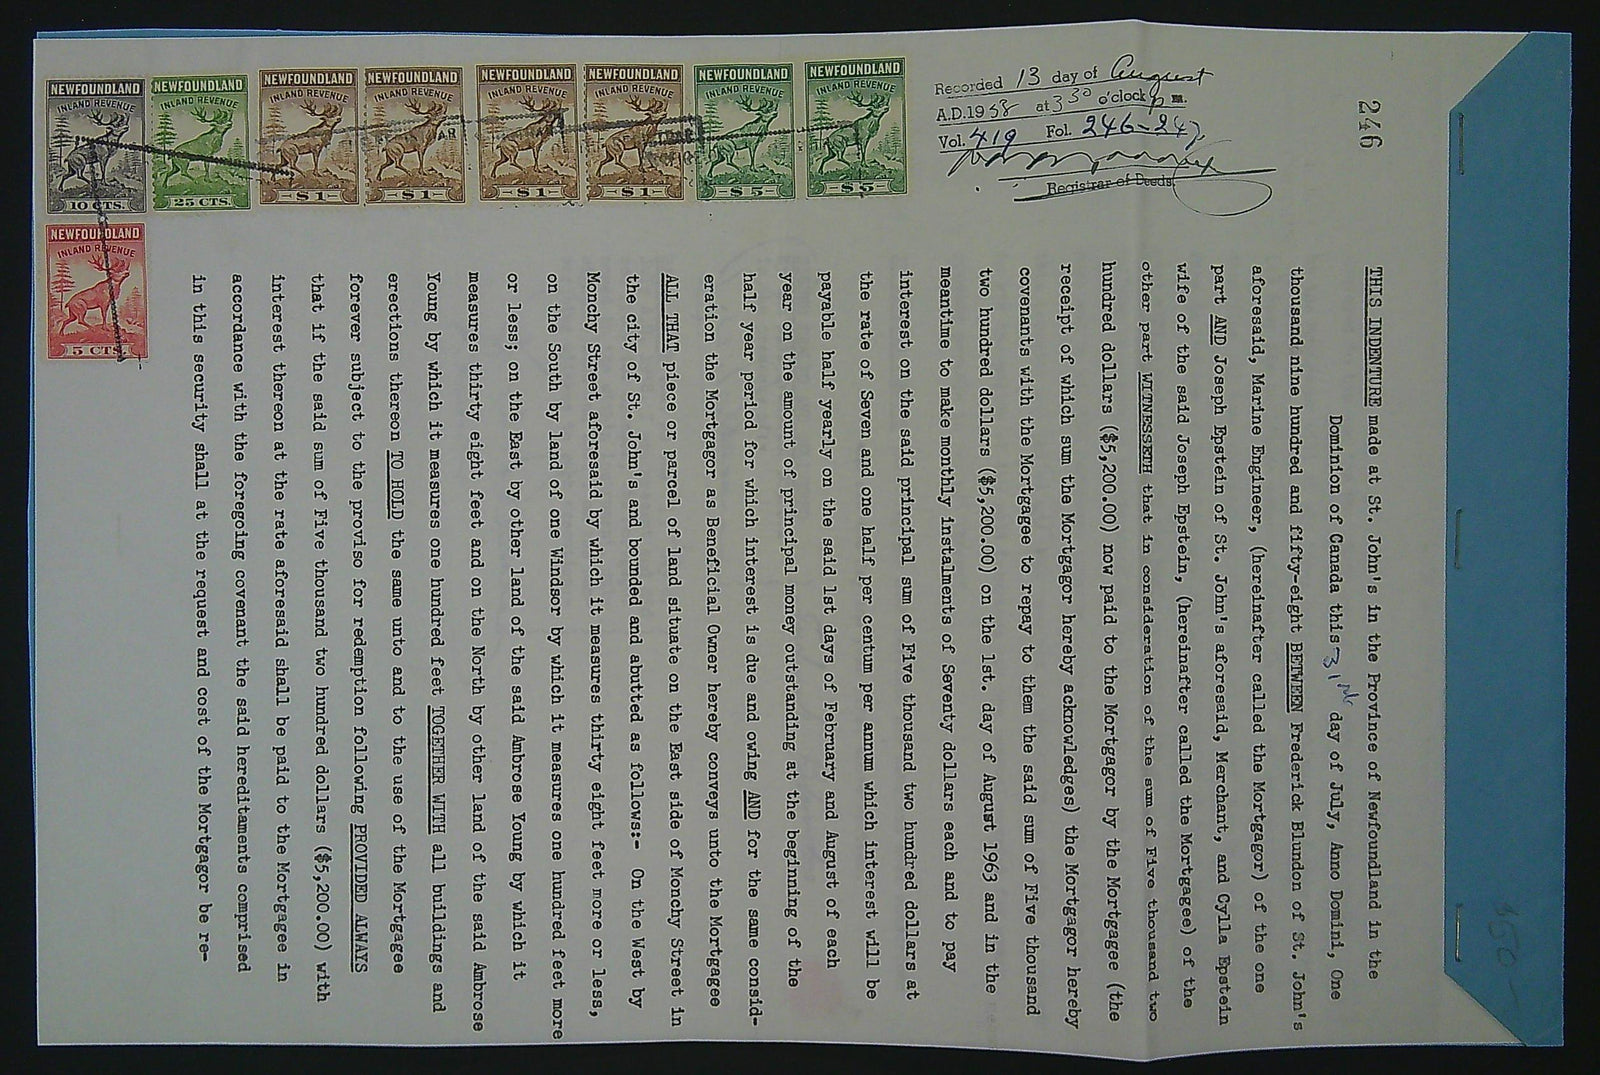 NEWFOUNDLAND
INLAND REVENUE
10 CTS.
NEWFOUNDLAND
INLAND REVENUE
25 CTS.
NEWFOUNDLAND
INLAND REVENUE
$1
NEWFOUNDLAND
INLAND REVENUE
$1
NEWFOUNDLAND
INLAND REVENUE
$1
NEWFOUNDLAND
INLAND REVENUE
$1
NEWFOUNDLAND
INLAND REVENUE
$5
NEWFOUNDLAND
INLAND REVENUE
$5
NEWFOUNDLAND
INLAND REVENUE
5 CTS.
Recorded 13 day of August
A.D.1958 at 3 30 o'clock p m.
Vol. 419 Fol. 246-247
Registrar of Deeds
246
THIS INDENTURE made at St. John's in the Province of Newfoundland in the
Dominion of Canada this 31st day of July, Anno Domini, One
thousand nine hundred and fifty-eight BETWEEN Frederick Blundon of St. John's
aforesaid, Marine Engineer, (hereinafter called the Mortgagor) of the one
part AND Joseph Epstein of St. John's aforesaid, Merchant, and Cylla Epstein
wife of the said Joseph Epstein, (hereinafter called the Mortgagee) of the
other part WITNESSETH that in consideration of the sum of Five thousand two
hundred dollars ($5,200.00) now paid to the Mortgagor by the Mortgagee (the
receipt of which sum the Mortgagor hereby acknowledges) the Mortgagor hereby
covenants with the Mortgagee to repay to them the said sum of Five thousand
two hundred dollars ($5,200.00) on the 1st. day of August 1963 and in the
meantime to make monthly instalments of Seventy dollars each and to pay
interest on the said principal sum of Five thousand two hundred dollars at
the rate of Seven and one half per centum per annum which interest will be
payable half yearly on the said 1st days of February and August of each
year on the amount of principal money outstanding at the beginning of the
half year period for which interest is due and owing AND for the same consid-
eration the Mortgagor as Beneficial Owner hereby conveys unto the Mortgagee
ALL THAT piece or parcel of land situate on the East side of Monchy Street in
the city of St. John's and bounded and abutted as follows:- On the West by
Monchy Street aforesaid by which it measures thirty eight feet more or less,
on the South by land of one Windsor by which it measures one hundred feet more
or less; on the East by other land of the said Ambrose Young by which it
measures thirty eight feet and on the North by other land of the said Ambrose
Young by which it measures one hundred feet TOGETHER WITH all buildings and
erections thereon TO HOLD the same unto and to the use of the Mortgagee
forever subject to the proviso for redemption following PROVIDED ALWAYS
that if the said sum of Five thousand two hundred dollars ($5,200.00) with
interest thereon at the rate aforesaid shall be paid to the Mortgagee in
accordance with the foregoing covenant the said hereditaments comprised
in this security shall at the request and cost of the Mortgagor be re-